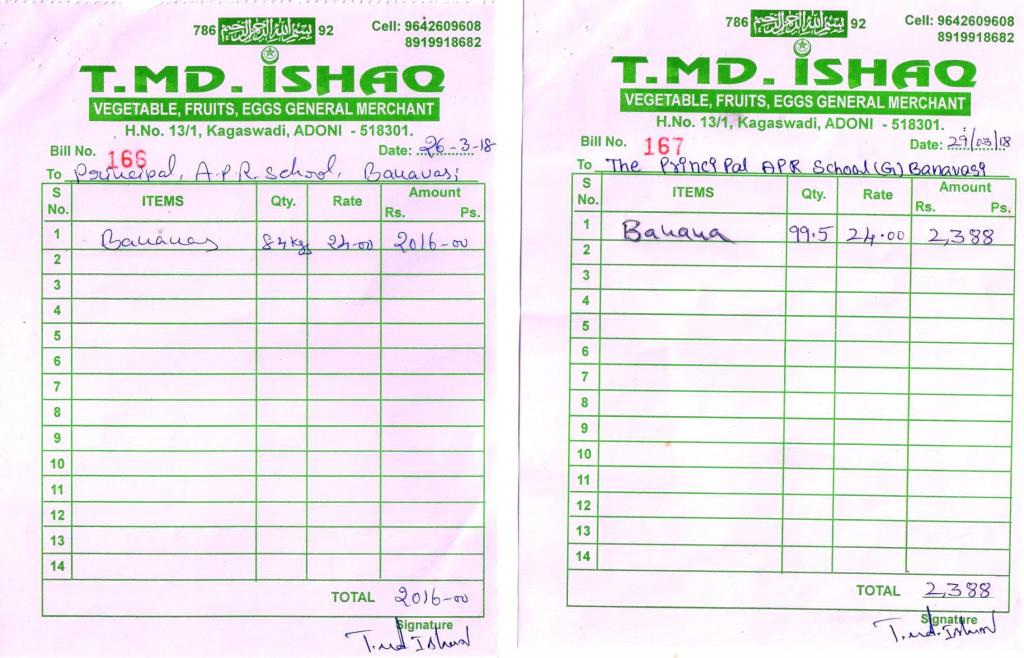 786 بسم الله الرحمن الرحيم 92
Cell: 9642609608
8919918682
T.MD. ISHAQ
VEGETABLE, FRUITS, EGGS GENERAL MERCHANT
H.No. 13/1, Kagaswadi, ADONI - 518301.
Bill No. 166 Date: 26-3-18
To Principal, A.P.R. School, Banavasi
S No. ITEMS Qty. Rate Amount
Rs. Ps.
1 Bananas 84kg 24-00 2016-00
2
3
4
5
6
7
8
9
10
11
12
13
14
TOTAL 2016-00
Signature
T.md Ishaq
786 بسم الله الرحمن الرحيم 92
Cell: 9642609608
8919918682
T.MD. ISHAQ
VEGETABLE, FRUITS, EGGS GENERAL MERCHANT
H.No. 13/1, Kagaswadi, ADONI - 518301.
Bill No. 167 Date: 29/03/18
To The Principal APR School (G) Banavasi
S No. ITEMS Qty. Rate Amount
Rs. Ps.
1 Banana 99.5 24.00 2,388
2
3
4
5
6
7
8
9
10
11
12
13
14
TOTAL 2,388
Signature
T.md. Ishaq